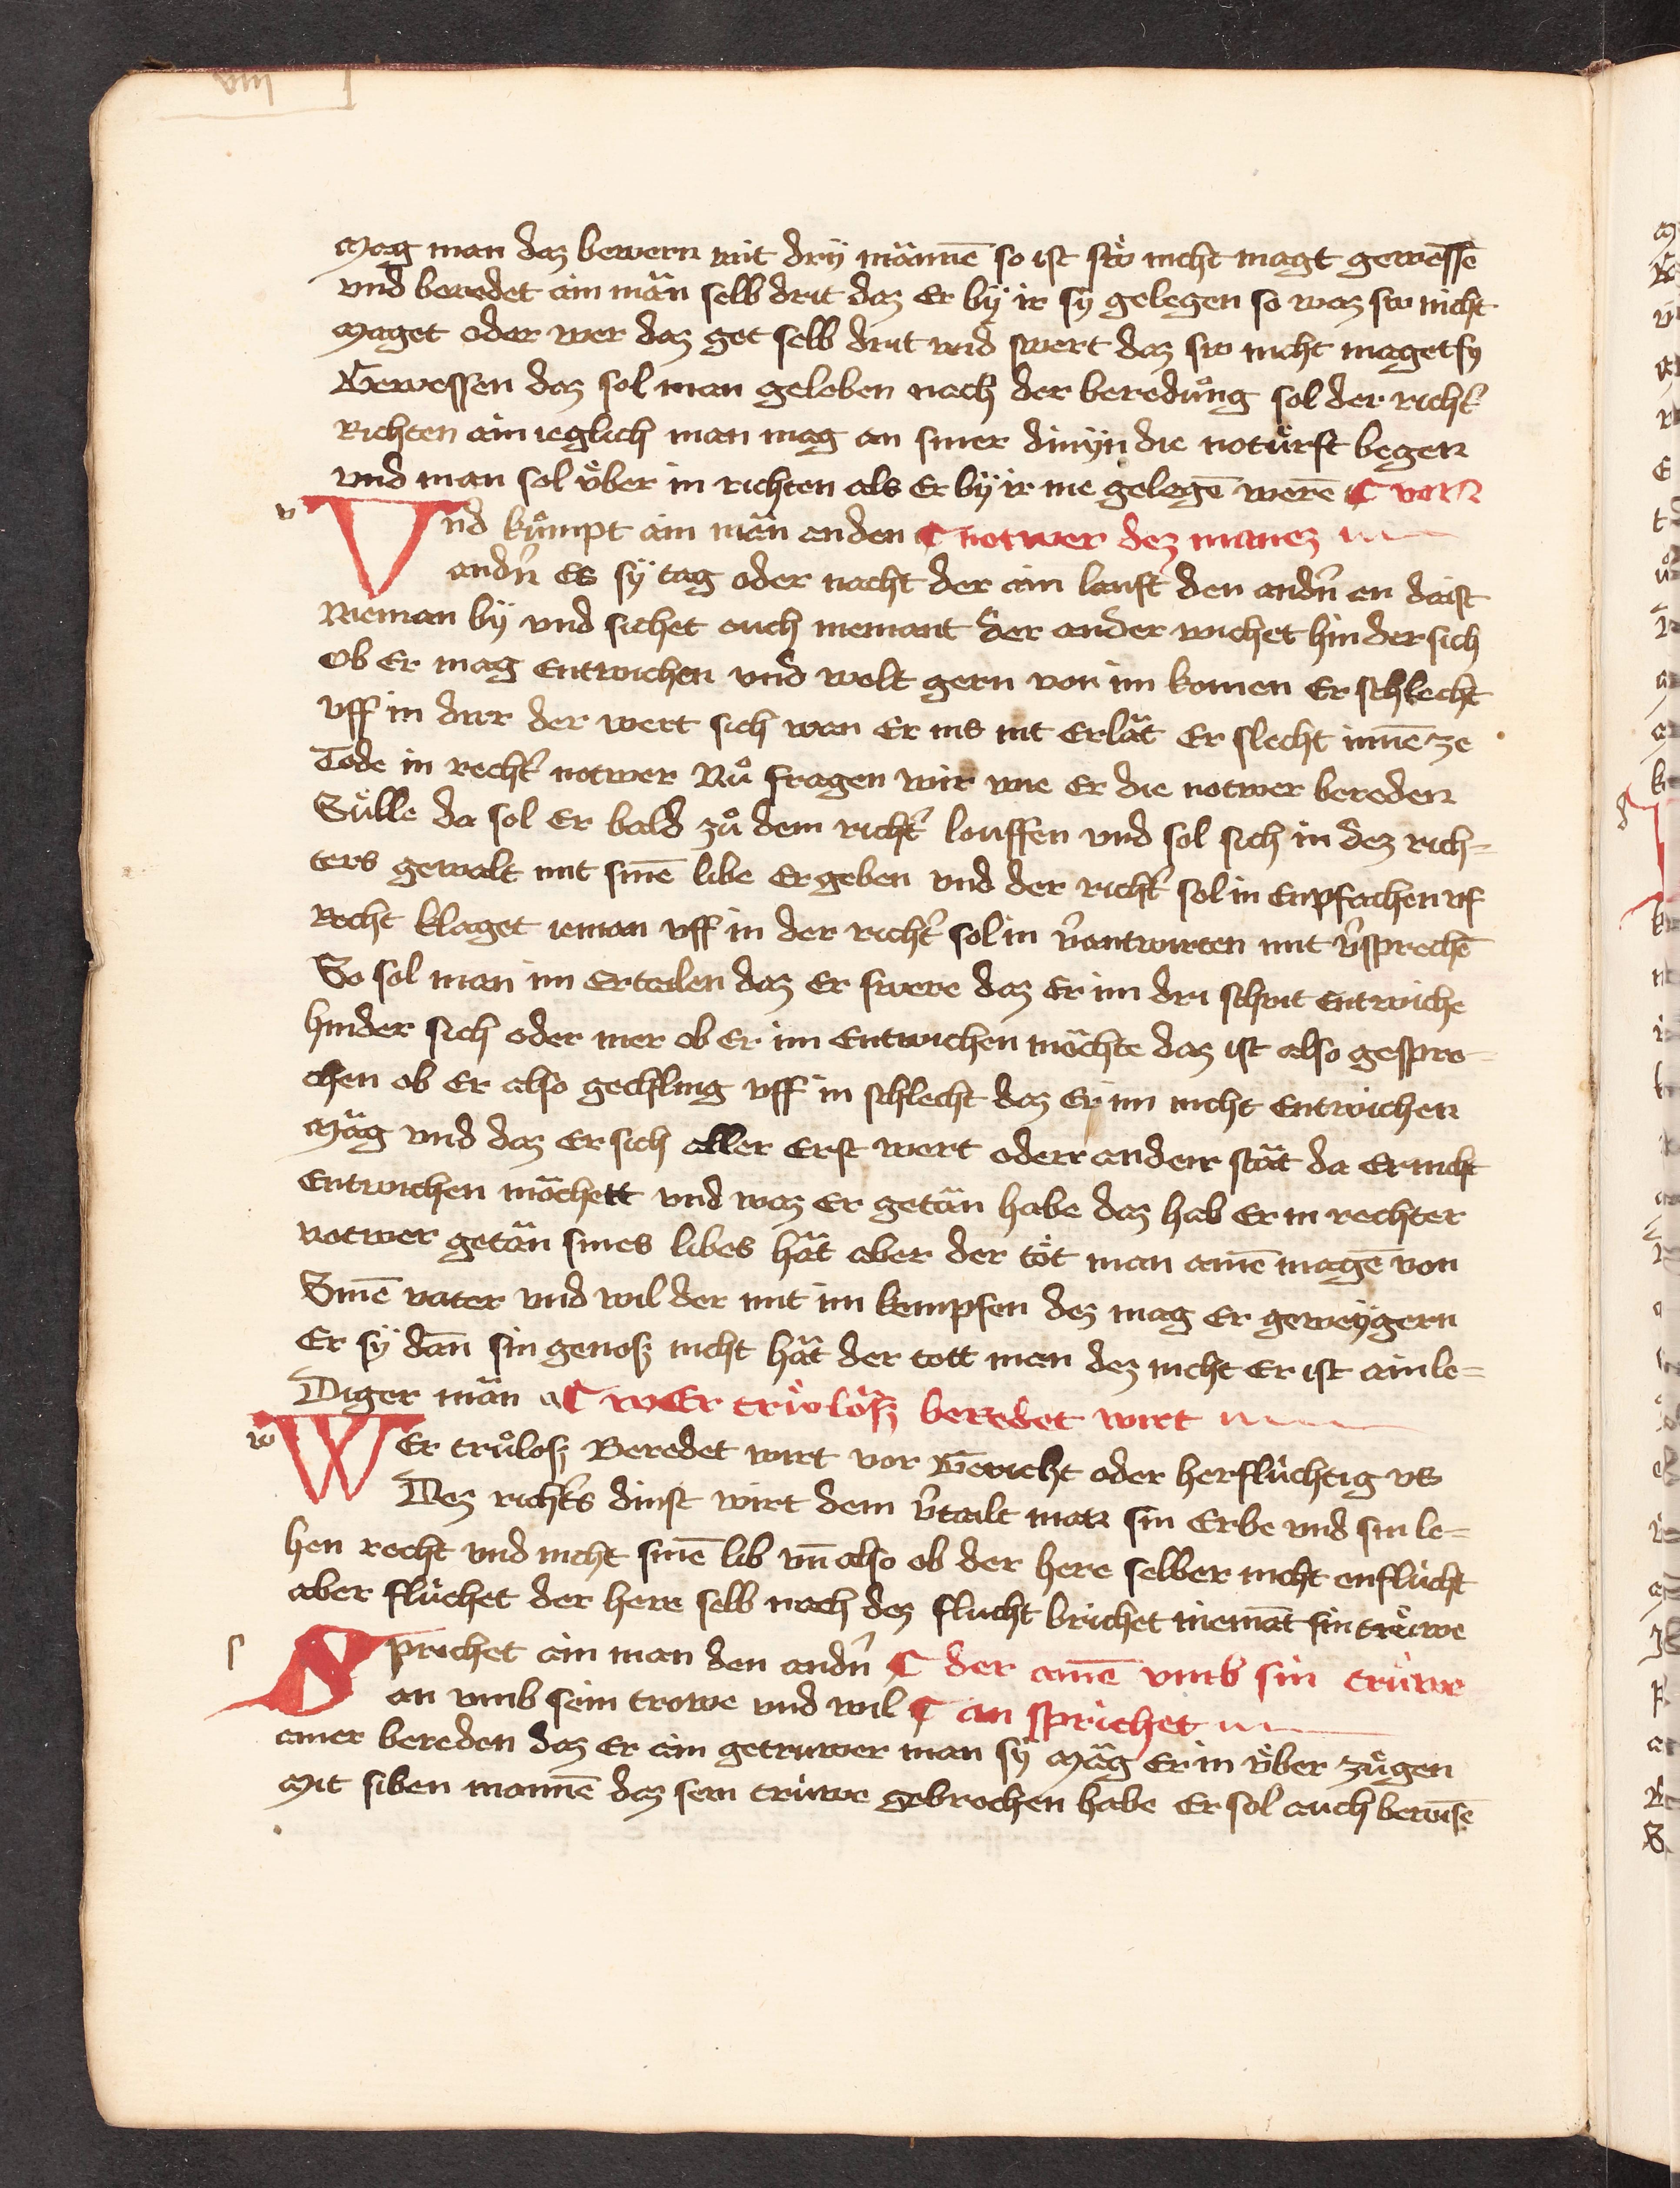 Mag man daz bewern mit drÿ männē so ist sẅ nicht magt gewessē
vnd beredet ain män selb drit daz Er bÿ ir sÿ gelegen so waz sw nicht
Maget oder wer daz get selb drit vnd swert daz sw nicht maget sy
Gewessen daz sol man geloben nach der beredůng sol der richt̉
Richten ain ieglich man mag an siner dinÿn die notůrft begen
vnd man sol v̈ber in richten als Er bÿ ir nie gelegē werē ¶ von
v
Vnd kůmpt ain män an den ¶ notwer dez manez
andn̉ Es sÿ tag oder nacht der ain lauft den andn̉ an da ist
Nieman bÿ vnd sichet ouch niemant der ander wichet hinder sich
Ob Er mag Entwichen vnd welt gern von im komen Er schlecht
vff in dirr der wert sich wan Er ins nit Erlät Er slecht innē ze
Tode in recht̉ notwer Nů fragen wir wie Er die notwer bereden
Sülle da sol Er bald zů dem richt̉ louffen vnd sol sich in dez rich=
ters gewalt mit sinē libe Ergeben vnd der richt̉ sol in Enpfachen vf
Recht klaget ieman vff in der richt̉ sol in v̉antwurten mit v̉sprechē
So sol man im Ertailen daz Er swere daz Er im dri schrit Entwiche
hinder sich oder mer ob Er im Entwichen möchte daz ist also gespro=
chen ob Er also gechling vff in schlecht daz Er im nicht Entwichen
Mäg vnd daz Er sich aller Erst wert oder an denr stät da Er nicht
Entwichen möchett vnd waz Er getän habe daz hab Er in rechter
notwer getän sines libes hät aber der töt man ainē magē von
Sinē vater vnd wil der mit im kempfen dez mag Er geweÿgern
Er sÿ dān sin genosz nicht hät der tott man dez nicht Er ist ain le=
Diger män ¶ wEr trẅlösz beredet wirt
w
WEr trůlosz Beredet wirt vor Gericht oder herflüchtig vs
Dez richt̉s dinst wirt dem v̉tailt man sin Erbe vnd sin le=
hen recht vnd nicht sinē lib vn̄ also ob der here selber nicht enflücht
aber flüchet der here selb nach dez flucht brichet niemāt sin trüwe
s
Sprichet ain man den andn̉ ¶ der ainē vmb sin trüwe
an vmb sein trowe vnd wil ¶ an sprichet
ainer bereden daz Er ain getruwer man sÿ Mäg Er in v̈ber zůgen
Mit siben mannē daz sein trüwe gebrochen habe Er sol auch bewisē